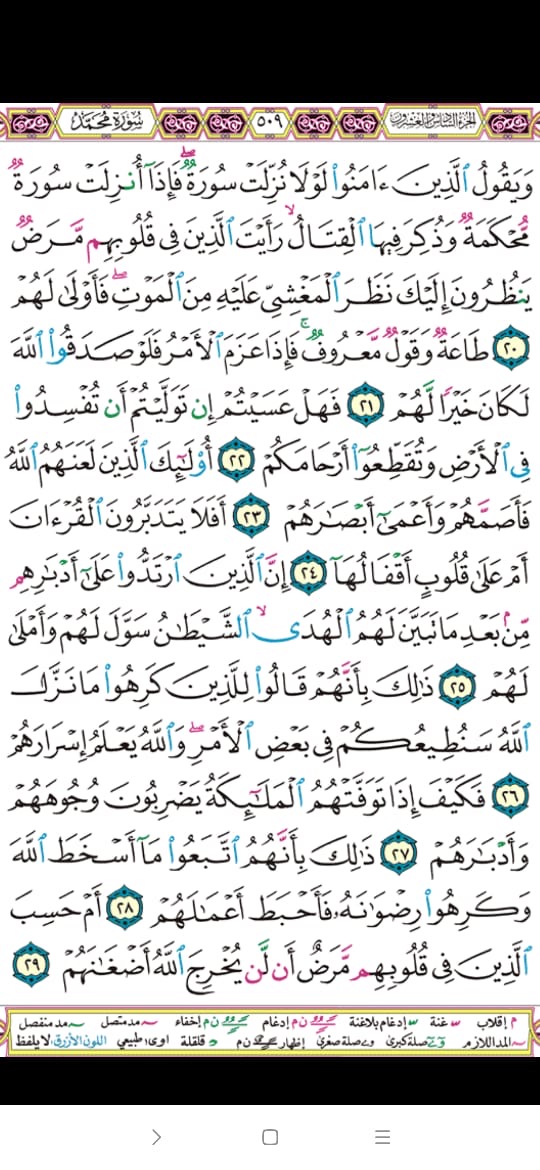 الجزء السادس والعشرون ٥٠٩ سورة محمد
وَيَقُولُ ٱلَّذِينَ ءَامَنُوا۟ لَوْلَا نُزِّلَتْ سُورَةٌ ۖ فَإِذَآ أُنزِلَتْ سُورَةٌ
مُّحْكَمَةٌ وَذُكِرَ فِيهَا ٱلْقِتَالُ ۙ رَأَيْتَ ٱلَّذِينَ فِى قُلُوبِهِم مَّرَضٌ
يَنظُرُونَ إِلَيْكَ نَظَرَ ٱلْمَغْشِىِّ عَلَيْهِ مِنَ ٱلْمَوْتِ ۖ فَأَوْلَىٰ لَهُمْ
٢٠ طَاعَةٌ وَقَوْلٌ مَّعْرُوفٌ ۚ فَإِذَا عَزَمَ ٱلْأَمْرُ فَلَوْ صَدَقُوا۟ ٱللَّهَ
لَكَانَ خَيْرًا لَّهُمْ ٢١ فَهَلْ عَسَيْتُمْ إِن تَوَلَّيْتُمْ أَن تُفْسِدُوا۟
فِى ٱلْأَرْضِ وَتُقَطِّعُوٓا۟ أَرْحَامَكُمْ ٢٢ أُو۟لَـٰٓئِكَ ٱلَّذِينَ لَعَنَهُمُ ٱللَّهُ
فَأَصَمَّهُمْ وَأَعْمَىٰٓ أَبْصَـٰرَهُمْ ٢٣ أَفَلَا يَتَدَبَّرُونَ ٱلْقُرْءَانَ
أَمْ عَلَىٰ قُلُوبٍ أَقْفَالُهَآ ٢٤ إِنَّ ٱلَّذِينَ ٱرْتَدُّوا۟ عَلَىٰٓ أَدْبَـٰرِهِم
مِّنۢ بَعْدِ مَا تَبَيَّنَ لَهُمُ ٱلْهُدَى ۙ ٱلشَّيْطَـٰنُ سَوَّلَ لَهُمْ وَأَمْلَىٰ
لَهُمْ ٢٥ ذَٰلِكَ بِأَنَّهُمْ قَالُوا۟ لِلَّذِينَ كَرِهُوا۟ مَا نَزَّلَ
ٱللَّهُ سَنُطِيعُكُمْ فِى بَعْضِ ٱلْأَمْرِ ۖ وَٱللَّهُ يَعْلَمُ إِسْرَارَهُمْ
٢٦ فَكَيْفَ إِذَا تَوَفَّتْهُمُ ٱلْمَلَـٰٓئِكَةُ يَضْرِبُونَ وُجُوهَهُمْ
وَأَدْبَـٰرَهُمْ ٢٧ ذَٰلِكَ بِأَنَّهُمُ ٱتَّبَعُوا۟ مَآ أَسْخَطَ ٱللَّهَ
وَكَرِهُوا۟ رِضْوَٰنَهُۥ فَأَحْبَطَ أَعْمَـٰلَهُمْ ٢٨ أَمْ حَسِبَ
ٱلَّذِينَ فِى قُلُوبِهِم مَّرَضٌ أَن لَّن يُخْرِجَ ٱللَّهُ أَضْغَـٰنَهُمْ ٢٩
م إقلاب غنة إدغام بلاغنة ن م إدغام ن م إخفاء مد متصل مد منفصل
المد اللازم صلة كبرى صلة صغرى إظهار ن م قلقلة طبيعي اللون الأزرق لا يلفظ